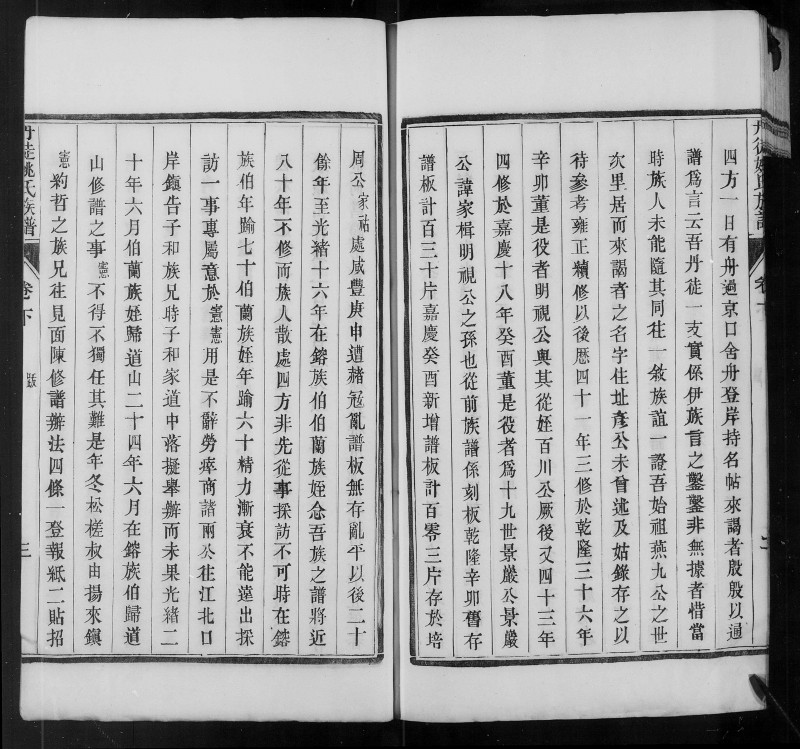 四方一日有舟過京口舍舟登岸持名帖來謁者殷殷以通
譜爲言云吾丹徒一支實係伊族言之鑿鑿非無據者惜當
時族人未能隨其同往一敘族誼一證吾始祖燕九公之世
次里居而來謁者之名字住址彥公未曾述及姑錄存之以
待參考雍正續修以後歷四十一年三修於乾隆三十六年
辛卯董是役者明視公與其從姪百川公厥後又四十三年
四修於嘉慶十八年癸酉董是役者爲十九世景嚴公景嚴
公諱家楫明視公之孫也從前族譜係刻板乾隆辛卯舊存
譜板計百三十片嘉慶癸酉新增譜板計百零三片存於培
卷下
二
周公家祜處咸豐庚申遭赭寇亂譜板無存亂平以後二十
餘年至光緒十六年在鎔族伯伯蘭族姪念吾族之譜將近
八十年不修而族人散處四方非先從事採訪不可時在鎔
族伯年踰七十伯蘭族姪年踰六十精力漸衰不能遠出採
訪一事專屬意於憲憲用是不辭勞瘁商諸兩公往江北口
岸鎮告子和族兄時子和家道中落擬舉辦而未果光緒二
十年六月伯蘭族姪歸道山二十四年六月在鎔族伯歸道
山修譜之事憲不得不獨任其難是年冬松槎叔由揚來鎭
憲約哲之族兄往見面陳修譜辦法四條一登報紙二貼招
丹徒姚氏族譜
卷下
跋
三